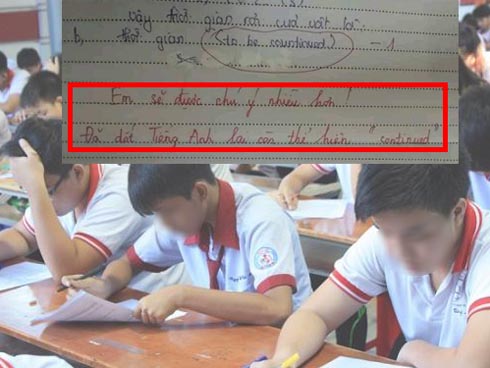 vậy thời gian rơi của vật là:
b, thời gian (to be countinued) -1
Em sẽ được chú ý nhiều hơn!
Đã dốt Tiếng Anh lại còn thể hiện "continued"